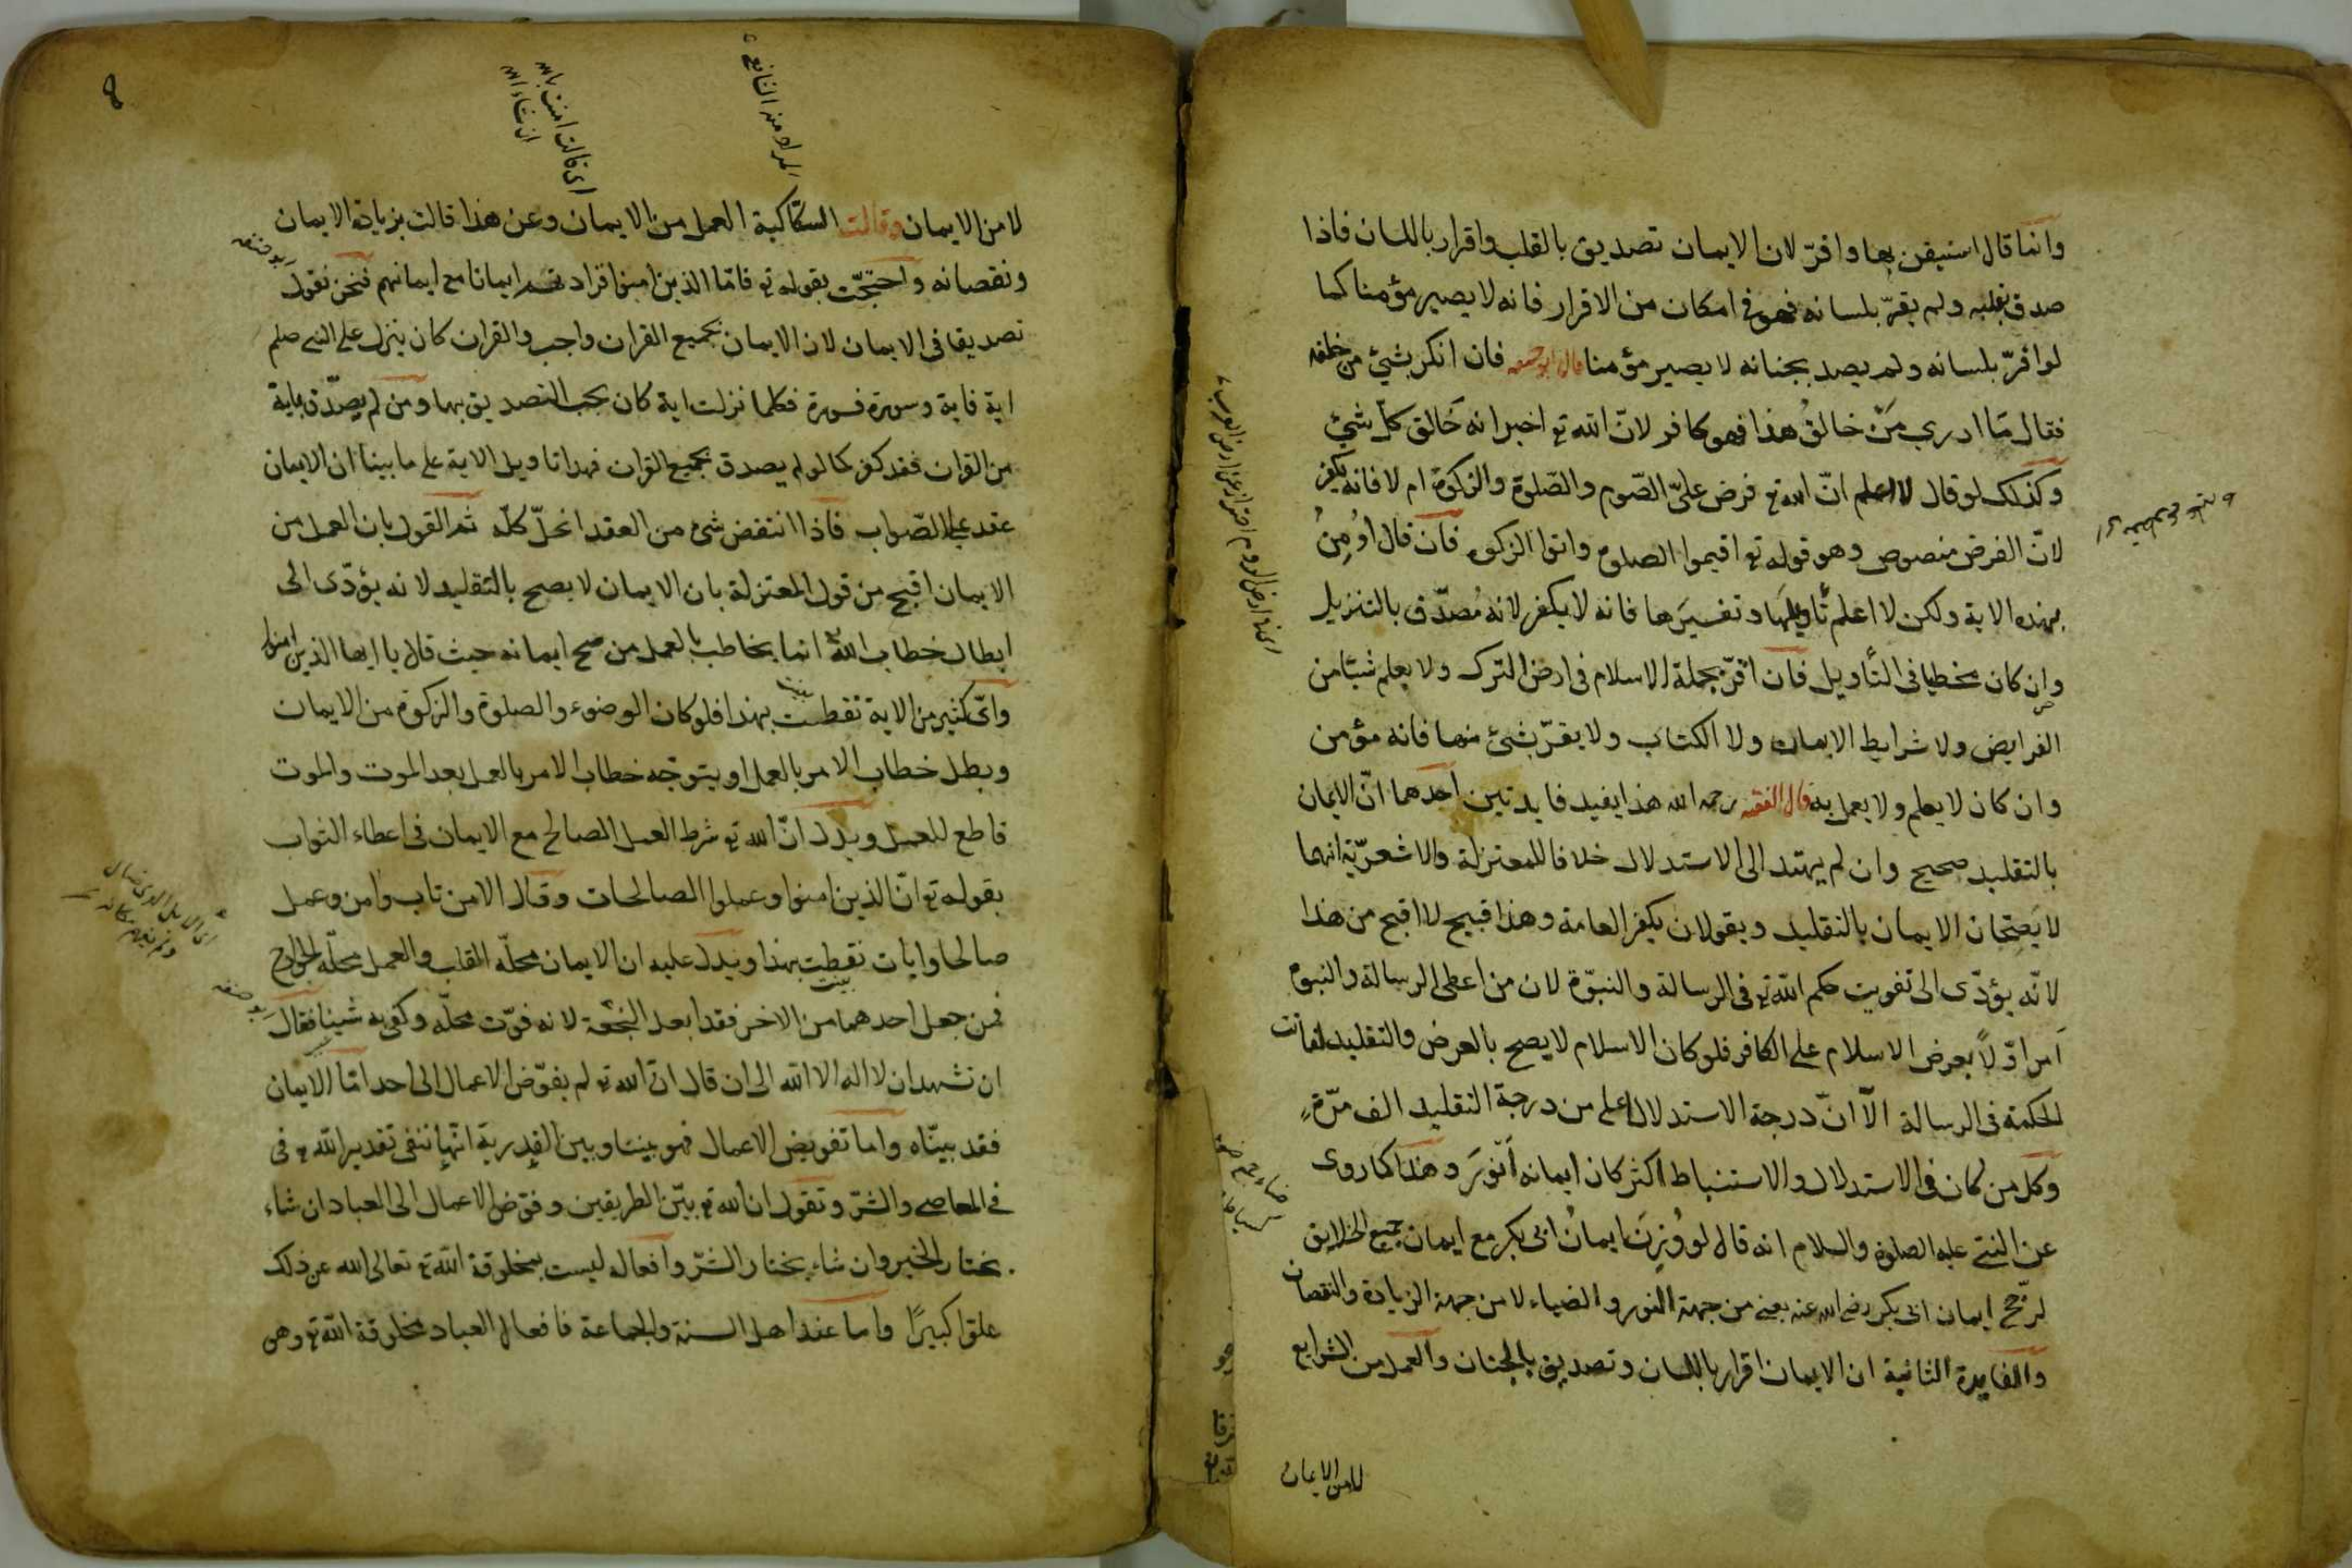 وانما قال استيقن بها واقرّ لان الايمان تصديق بالقلب واقرار باللسان فاذا
صدق بقلبه ولم يقرّ بلسانه فهو في امكان من الاقرار فانه لا يصير مؤمنا كما
لو اقرّ بلسانه ولم يصد بجنانه لا يصير مؤمنا قال ابو حنيفه فان انكر بشئ من خلقه
فقال ما ادري مَنْ خالقُ هذا فهو كافر لانّ الله تع اخبر انه خَالق كلّ شئٍ
وكذلك لو قال لا اعلم انّ الله تع فرض علىّ الصّوم والصّلوة والزكوة ام لا فانه يكفر
لانّ الفرض منصوص وهو قوله تع اقيموا الصلوة واتوا الزكوة فان قال اوُمِنُ
بهذه الاية ولكن لا اعلم تأويلَها وتفسيرَها فانه لا يكفر لانه مُصدّق بالتنزيل
وان كان مخطيا في التأويل فان اقرّ بجملة الاسلام في ارض الترك ولا يعلم شيئا من
الفرايض ولا شرايط الايمان ولا الكتاب ولا يقرّ بشئ منها فانه مؤمن
وان كان لا يعلم ولا يعمل به قال الفقيه رحمه الله هذا يفيد فايدتين احدهما انّ الايمان
بالتقليد صحيح وان لم يهتد الى الاستدلال خلافا للمعتزلة والاشعريّة انهما
لا يَصِحّحان الايمان بالتقليد ويقولان بكفر العامة وهذا قبيح لا اقبح من هذا
لانّه يؤدّى الى تفويت حكم الله تع في الرسالة والنبوّة لان من اعطى الرسالة والنبوة
اَمر اوّلاً بعرض الاسلام على الكافر فلو كان الاسلام لا يصح بالعرض والتقليد لفاتت
الحكمة في الرسالة الّا انّ درجة الاستدلال اعلى من درجة التقليد الف مرّةٍ
وكل من كان في الاستدلال والاستنباط اكثر كان ايمانه اَنْوَرَ وهذا كما روى
عن النبي عليه الصلوة والسلام انه قال لو وُزِنَ ايمانُ ابى بكر مع ايمان جميع الخلايق
لرجّح ايمان ابى بكر رضى الله عنه يعنى من جهة النور والضياء لا من جهة الزيادة والنقصان
والفايدة الثانية ان الايمان اقرار باللسان وتصديق بالجنان والعمل من الشرايع
لا من الايمان
المراد منه الشافعى
اى قالت امنت بالله
ان شاء الله
لا من الايمان وقالت السكّاكية العمل من الايمان وعن هذا قالت بزيادة الايمان
ونقصانه واحتجّت بقوله تع فامّا الذين امنوا فزادتهم ايمانا مع ايمانهم فنحن نقول
تصديقا في الايمان لان الايمان بجميع القران واجب والقران كان ينزل على النبى صلم
اية فاية وسورة فسورة فكلما نزلت اية كان يجب التصديق بها ومن لم يصدّق باية
من القران فقد كفر كما لو لم يصدق بجميع القران فهذا تاويل الاية على ما بينا ان الايمان
عقد على الصّواب فاذا انتقض شئ من العقد انحلّ كلّه ثم القول بان العمل من
الايمان اقبح من قول المعتزلة بان الايمان لا يصح بالتقليد لانه يؤدّى الى
ابطال خطاب الله انما يخاطب بالعمل من صح ايمانه حيث قال يا ايها الذين امنوا
واىّ كثير من الاية نقطت بهذا فلو كان الوضوء والصلوة والزكوة من الايمان
وبطل خطاب الامر بالعمل او يتوجّه خطاب الامر بالعمل بعد الموت والموت
قاطع للعمل ويدل انّ الله تع شرط العمل الصالح مع الايمان في اعطاء الثواب
بقوله تع انّ الذين امنوا وعملوا الصالحات وقال الا من تاب وامن وعمل
صالحا وايات نقطت بهذا ويدل عليه ان الايمان محلّه القلب والعمل محلّه الجوارح
فمن جعل احدهما من الاخر فقد ابعد النجعة لانه فوّت محلّه وكفى به شينا فقال
ان تشهد ان لا اله الا الله الى ان قال انّ الله تع لم يفوّض الاعمال الى احد امّا الايمان
فقد بيّنّاه واما تفويض الاعمال فهو بيننا وبين القدرية انّها تنفى تقدير الله تع في
في المعاصى والشرّ وتقول ان الله تع بيّن الطريقين وفوّض الاعمال الى العباد ان شاء
يختار الخير وان شاء يختار الشرّ وافعاله ليست بمخلوقة الله تع تعالى الله عن ذلك
علوّا كبيرًا واما عند اهل السنة والجماعة فافعال العباد مخلوقة الله تع وهى